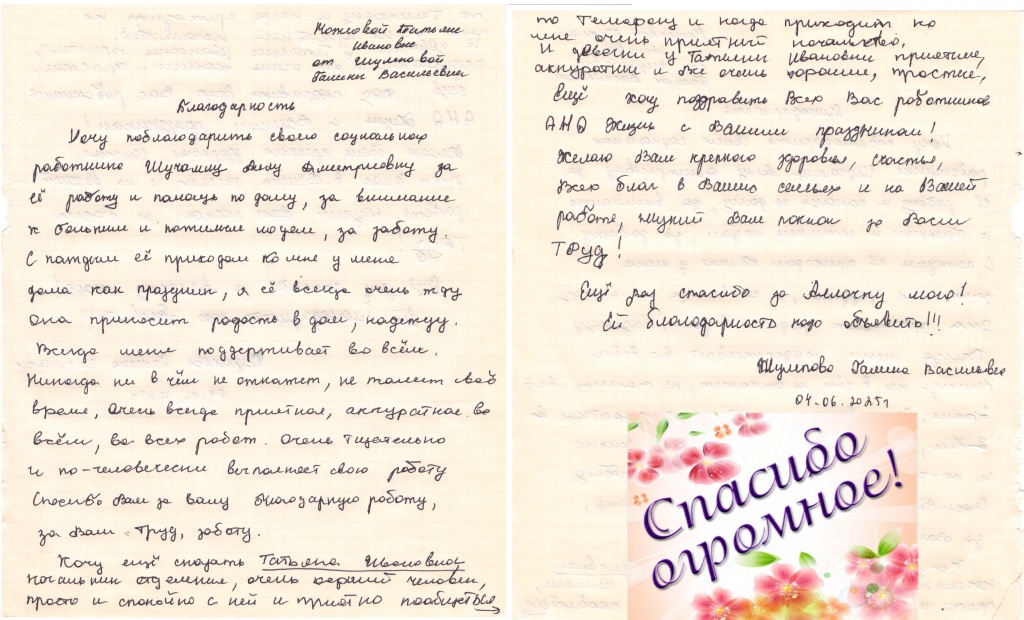 Татьяне
Ивановне
от
Галины Васильевны
Благодарность
Хочу поблагодарить своего социально
работника Анну Дмитриевну за
её работу и помощь по дому, за внимание
к больным и пожилым людям, за заботу
С каждым её приходом ко мне у меня
дома как праздник, я её всегда очень жду
Она приносит радость в дом, надежду.
Всегда меня поддерживает во всём.
Никогда ни в чём не откажет, не жалеет своё
время, очень всегда приятная, аккуратная во
всём, во всех работ. Очень тщательно
и по-человечески выполняет свою работу
Спасибо Вам за вашу благодарную работу,
за Ваш труд, заботу.
Хочу ещё сказать Татьяна Ивановна
начальник отделения, очень хороший человек,
просто и спокойно с ней и приятно пообщаться
по телефону и когда приходит ко
мне очень приятный начальство,
И девочки у Татьяны Ивановны приятные,
аккуратные и Все очень хорошие, простые,
Ещё хочу поздравить Всех Вас работников
АНО Жизнь с Вашим праздником!
Желаю Вам крепкого здоровья, счастья,
Всех благ в Ваших семьях и на Вашей
работе, низкий Вам поклон за Ваш
ТРУД!
Ещё раз спасибо за Аллочку мою!
Ей благодарность надо объявить!!!
Галина Васильевна
04.06.2025г
Спасибо
огромное!